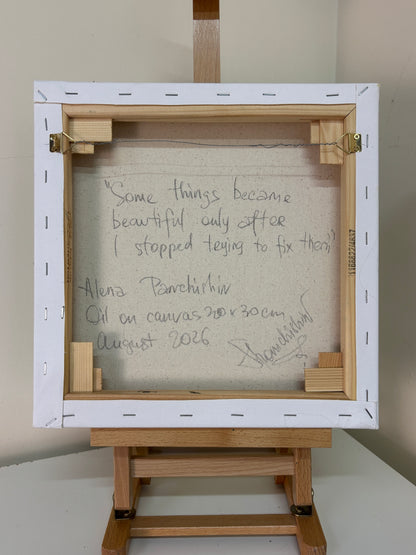 "Some things became
beautiful only after
I stopped trying to fix them"
Alena Panchishin
Oil on canvas 30x30cm
August 2026
Panchishin